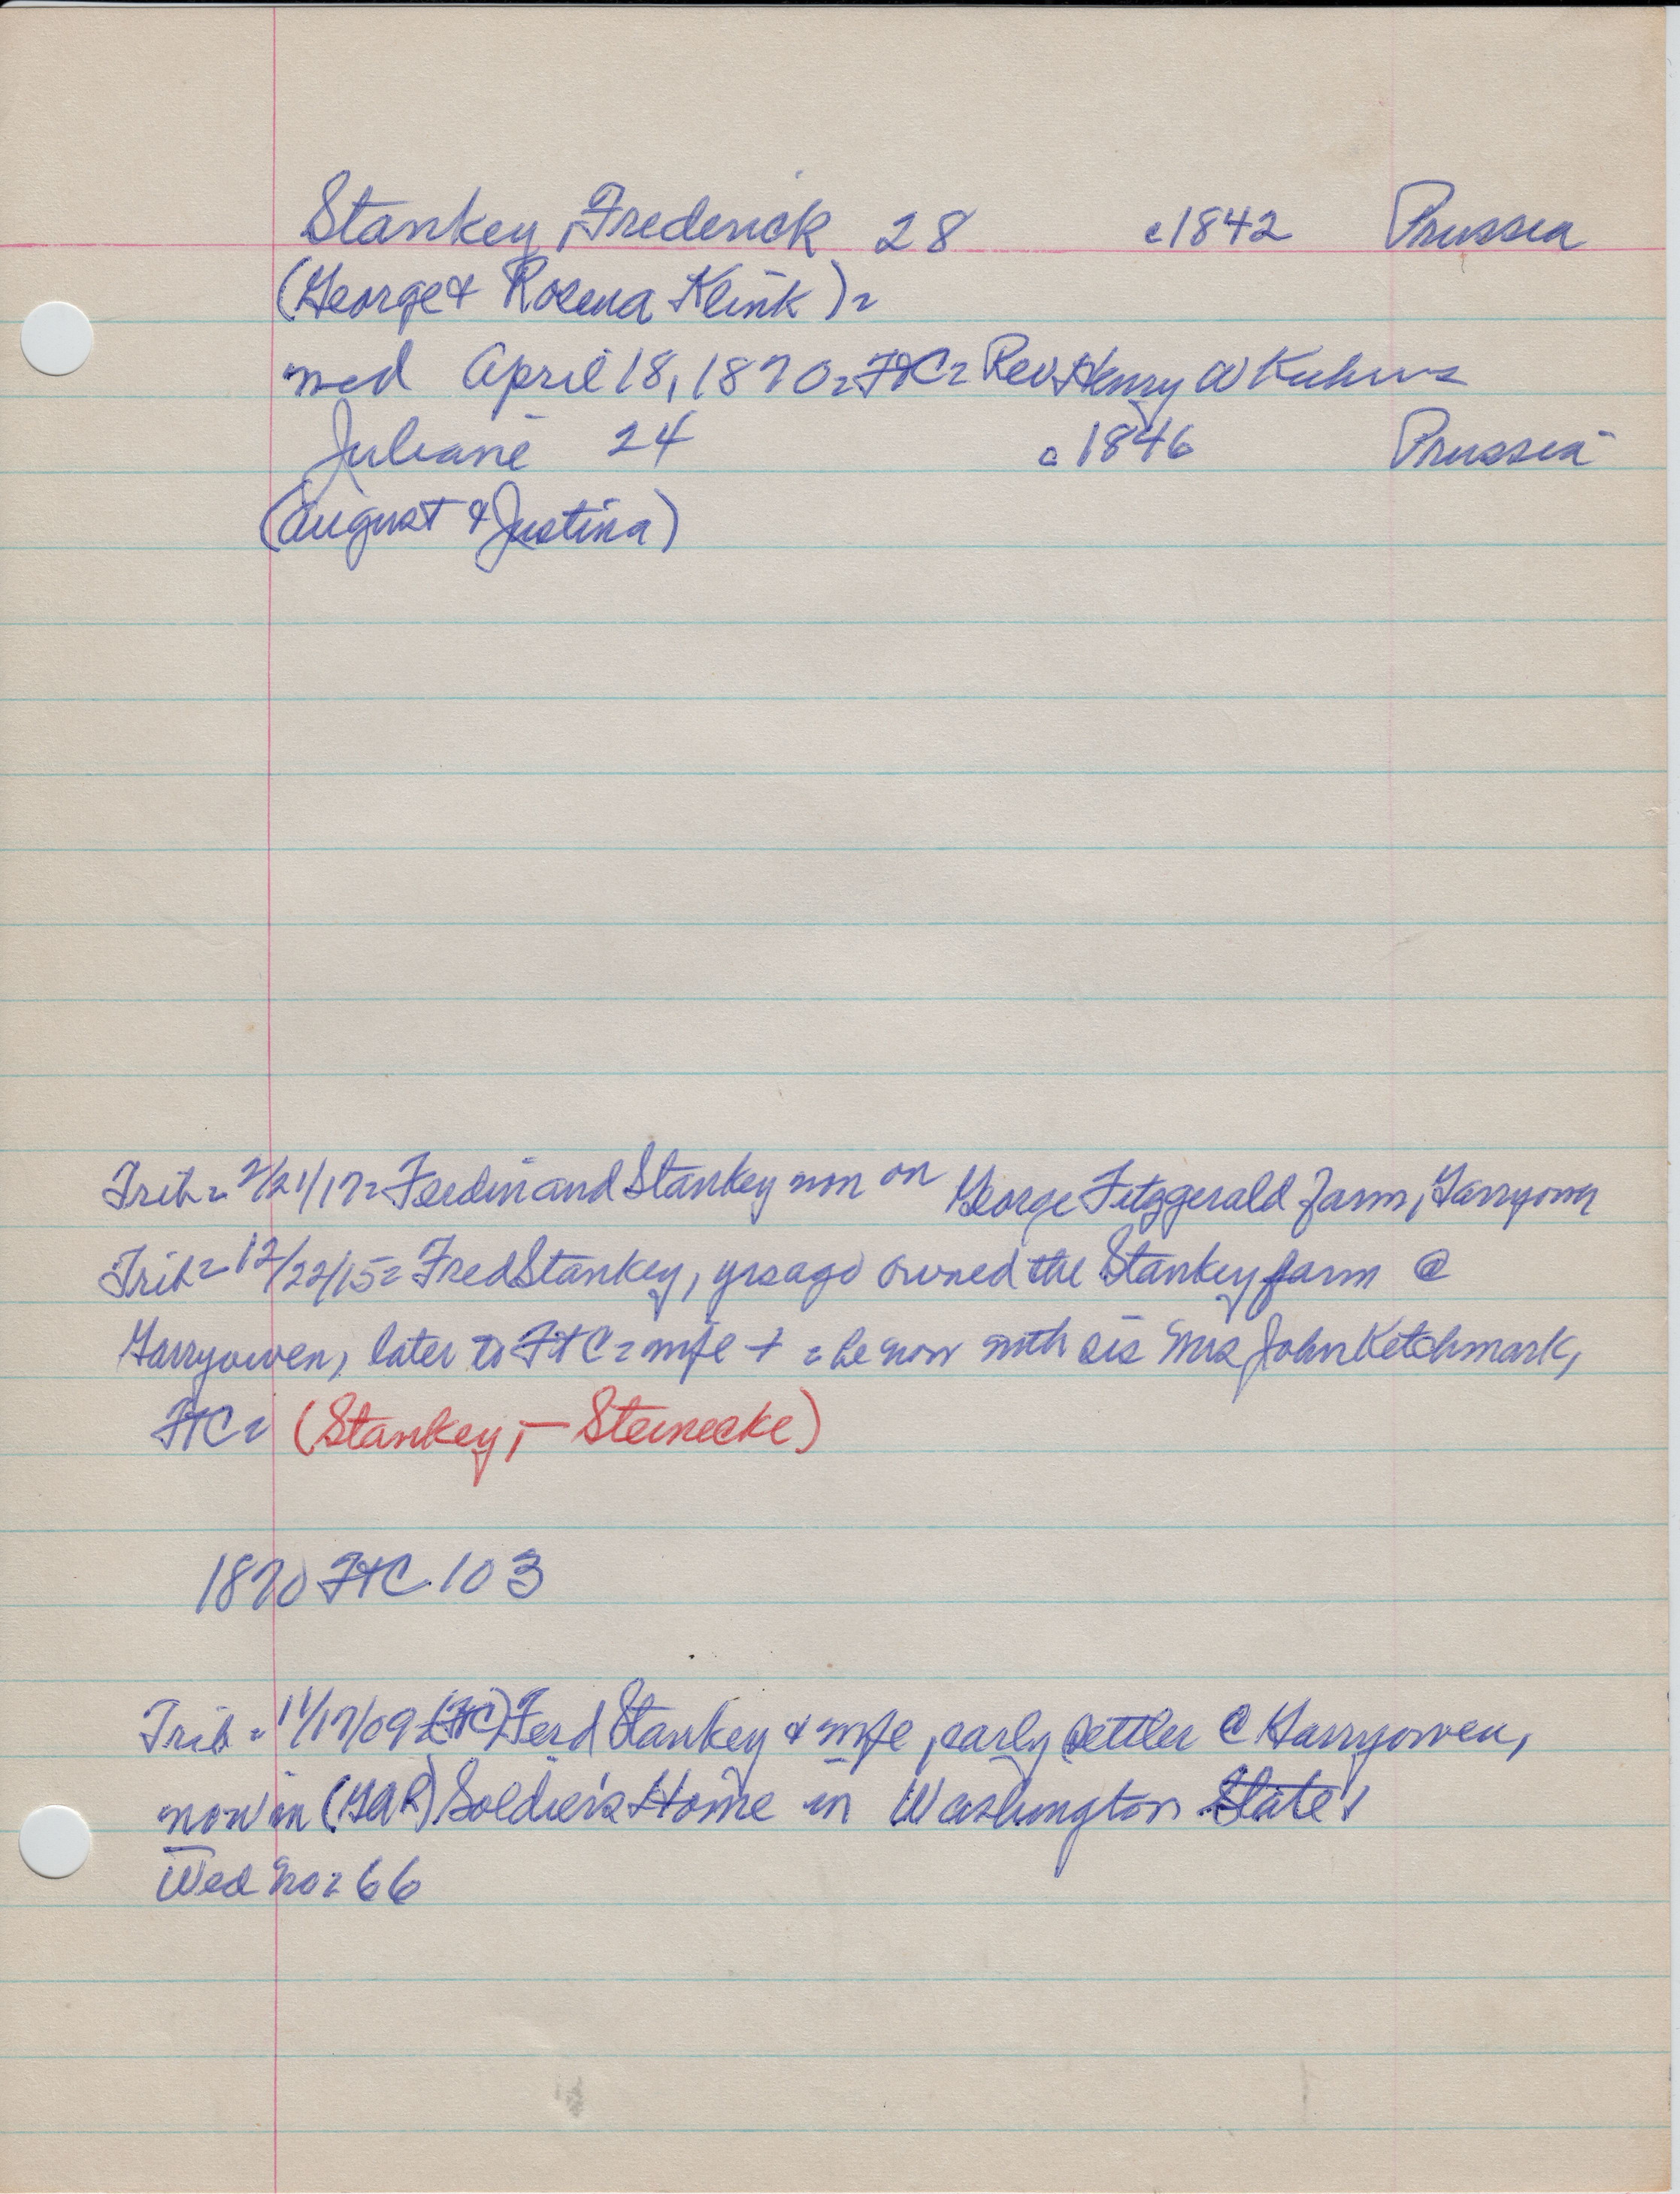 Stankey, Frederick 28 c1842 Prussia
(George & Rosena Klink)=
med April 18, 1870= FtC= Rev Henry W Kuhns=
Juliane 24 c1846 Prussia
(August & Justina)
Trib= 2/21/17= Ferdinand Stankey now on George Fitzgerald farm, Garryowen
Trib= 12/22/15= Fred Stankey, yrs ago owned the Stankey farm @
Garryowen, later to FtC= wife + = he now with sis Mrs John Ketchmark,
FtC= (Stankey, – Steinecke)
1870 FtC 103
Trib= 11/17/09= (FtC) Ferd Stankey & wife, early settler @ Garryowen,
now in (GAR) Soldier's Home in Washington State!
Wed No= 66